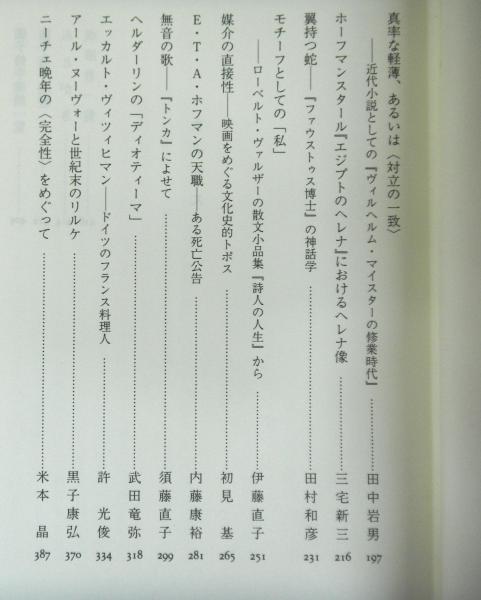 真率な軽薄、あるいは〈対立の一致〉
――近代小説としての『ヴィルヘルム・マイスターの修業時代』…………田中岩男 197
ホーフマンスタール『エジプトのヘレナ』におけるヘレナ像…………三宅新三 216
翼持つ蛇――『ファウストゥス博士』の神話学…………田村和彦 231
モチーフとしての「私」
――ローベルト・ヴァルザーの散文小品集『詩人の人生』から…………伊藤直子 251
媒介の直接性――映画をめぐる文化史的トポス…………初見基 265
E・T・A・ホフマンの天職――ある死亡公告…………内藤康裕 281
無音の歌――『トンカ』によせて…………須藤直子 299
ヘルダーリンの「ディオティーマ」…………武田竜弥 318
エッカルト・ヴィツィヒマン――ドイツのフランス料理人…………許光俊 334
アール・ヌーヴォーと世紀末のリルケ…………黒子康弘 370
ニーチェ晩年の〈完全性〉をめぐって…………米本晶 387